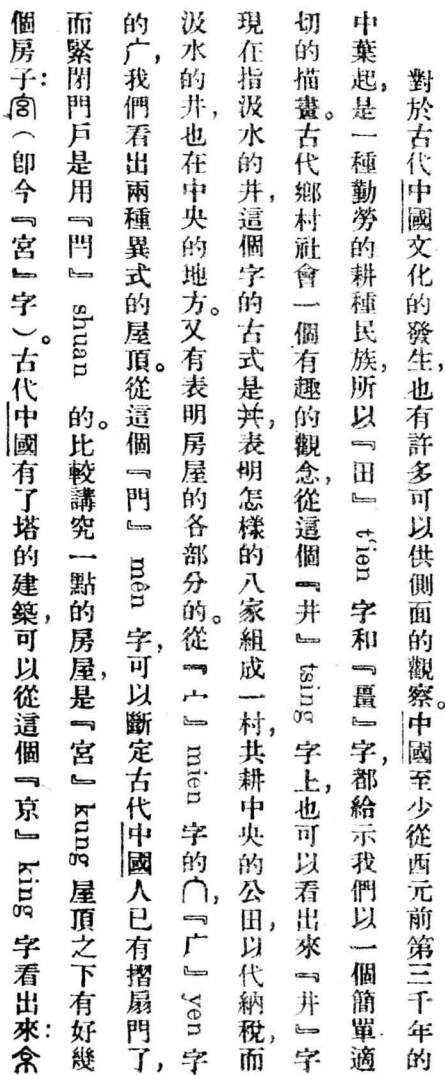 對於古代中國文化的發生，也有許多可以供側面的觀察。中國至少從西元前第三千年的
中葉起，是一種勤勞的耕種民族，所以『田』t'ien 字和『畺』字，都給示我們以一個簡單適
切的描畫。古代鄉村社會一個有趣的觀念，從這個『井』tsing 字上，也可以看出來『井』字
現在指汲水的井，這個字的古式是丼，表明怎樣的八家組成一村，共耕中央的公田，以代納稅，而
汲水的井，也在中央的地方。又有表明房屋的各部分的。從『宀』mien 字的宀，『广』yen 字
的广，我們看出兩種異式的屋頂。從這個『門』mên 字，可以斷定古代中國人已有摺扇門了，
而緊閉門戶是用『閂』shuan 的。比較講究一點的房屋，是『宮』kung 屋頂之下有好幾
個房子：（即今『宮』字）。古代中國有了塔的建築，可以從這個『京』king 字看出來：